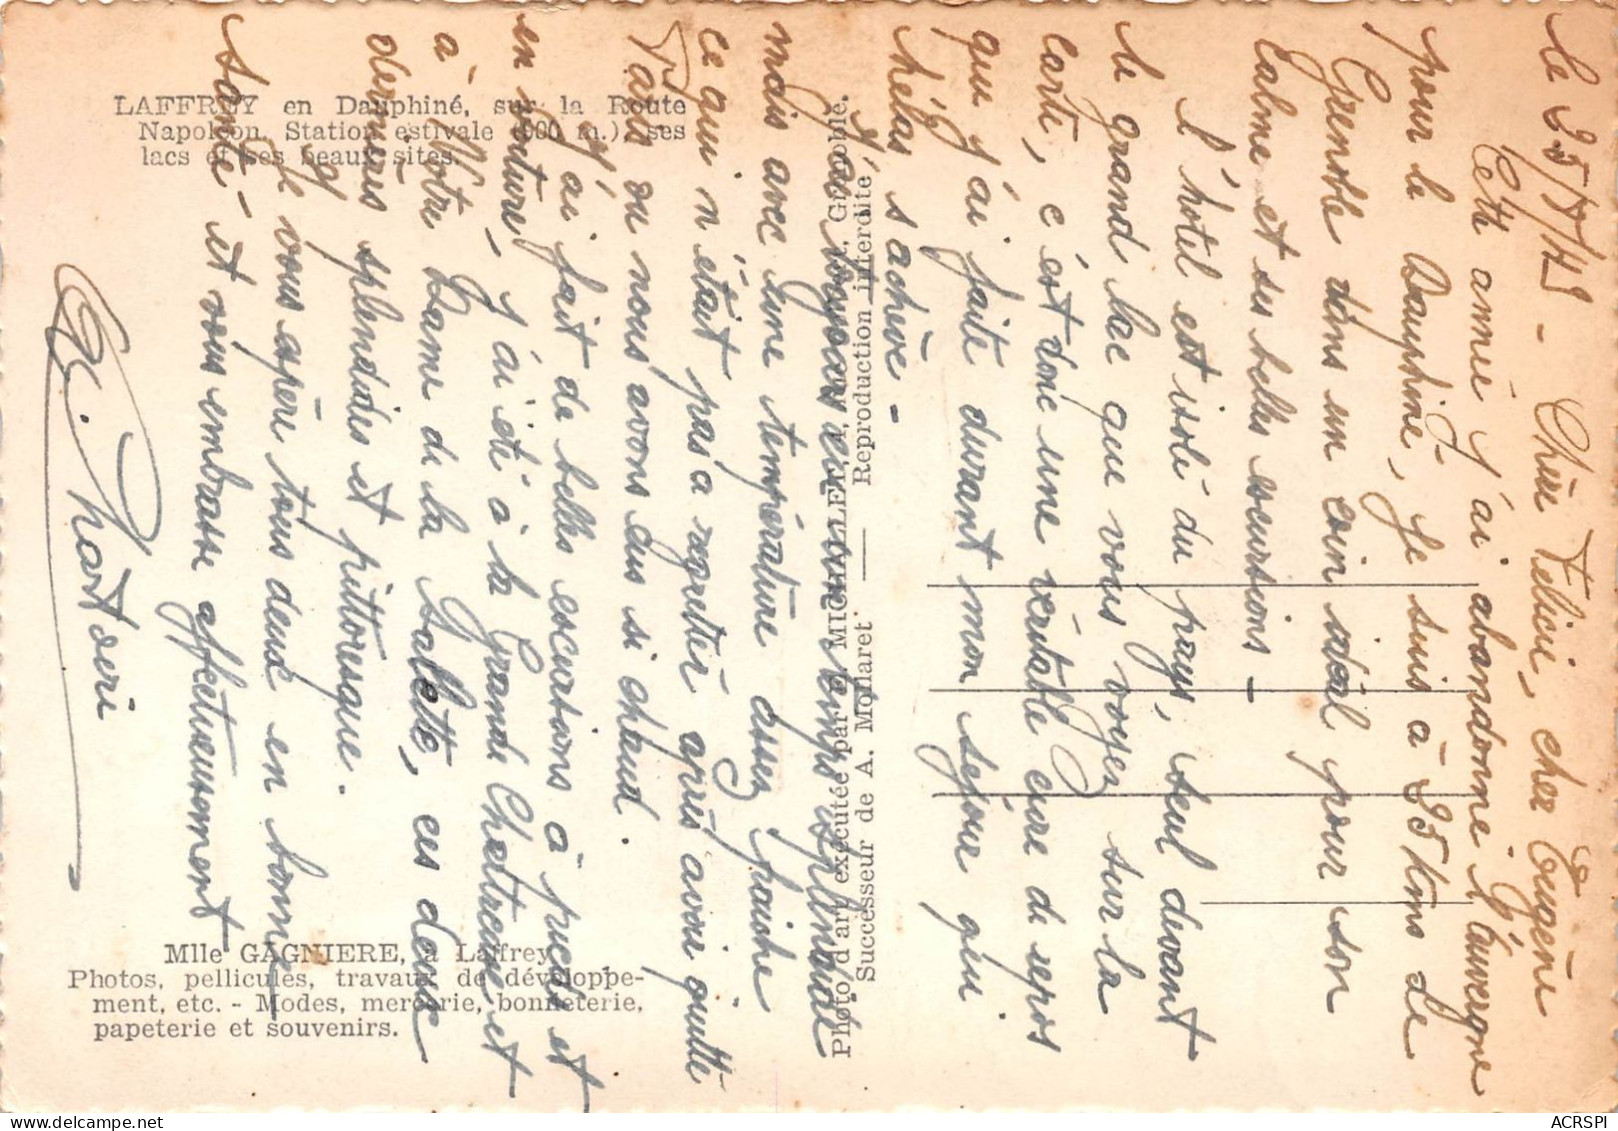 LAFFREY en Dauphiné, sur la Route
Napoléon, Station estivale (900 m.), ses
lacs et ses beaux sites.
Mlle GAGNIERE, à Laffrey
Photos, pellicules, travaux de développe-
ment, etc. - Modes, mercerie, bonneterie,
papeterie et souvenirs.
Photo d'art exécutée par E. MICHALLEN, Grenoble.
Successeur de A. Mollaret. — Reproduction interdite
le 25/8/49 - Chère Félicie, cher Eugène
Cette année j'ai abandonné l'Auvergne
pour le Dauphiné, Je suis à 25 kms de
Grenoble dans un coin idéal pour son
calme et ses belles excursions -
L'hôtel est isolé du pays, seul devant
le grand lac que vous voyez sur la
carte, c'est donc une véritable cure de repos
que j'ai faite durant mon séjour qui
hélas s'achève -
mais avec une température assez fraiche
ce qui n'était pas à regretter après avoir quitté
Paris où nous avons eus si chaud.
J'ai fait de belles excursions à pied et
en voiture, j'ai été à la Grande Chartreuse et
à Notre Dame de la Salette, ces deux
derniers splendides et pittoresque.
Je vous espère tous deux en bonne
santé - et vous embrasse affectueusement